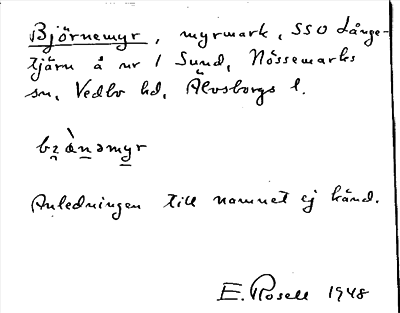 Björnemyr, myrmark, SSO Långe-
tjärn å nr 1 Sund, Nössemarks
sn, Vedbo hd, Älvsborgs l.
bz̯ὰnəmyr
Anledningen till namnet ej känd.
E. Rosell 1948